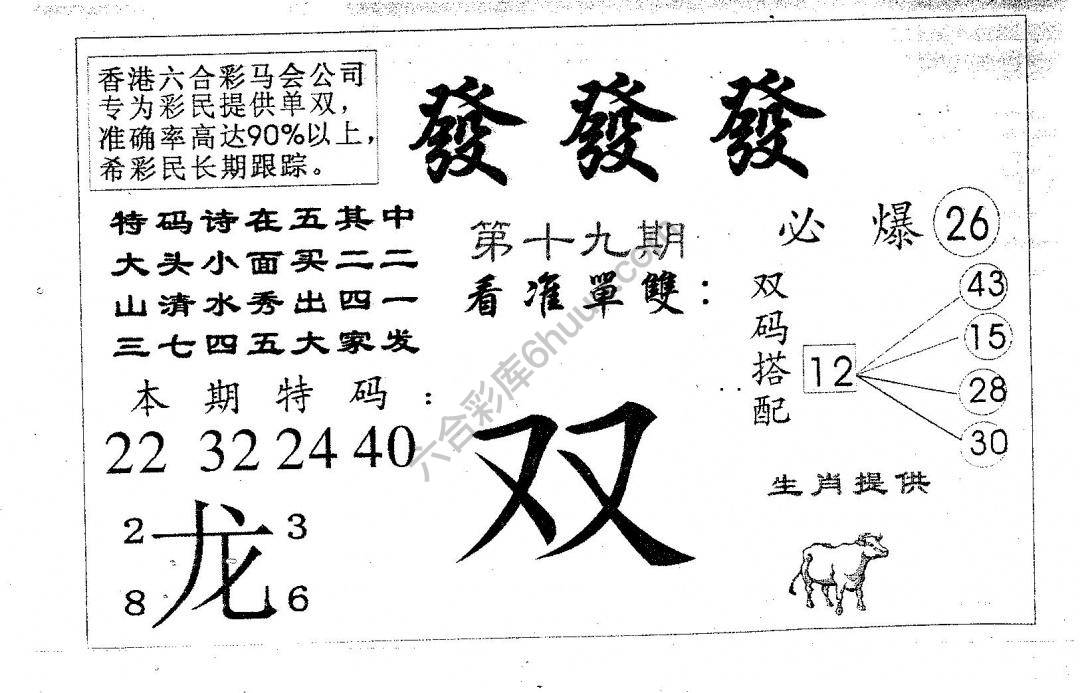 香港六合彩马会公司
专为彩民提供单双，
准确率高达90%以上，
希彩民长期跟踪。
發 發 發
特码诗在五其中
大头小面买二二
山清水秀出四一
三七四五大家发
第十九期
看准單雙：
必 爆 26
双码搭配
12
43
15
28
30
本期特码：
22 32 24 40
双
龙
2 3
8 6
生肖提供
六合彩库6huu.com